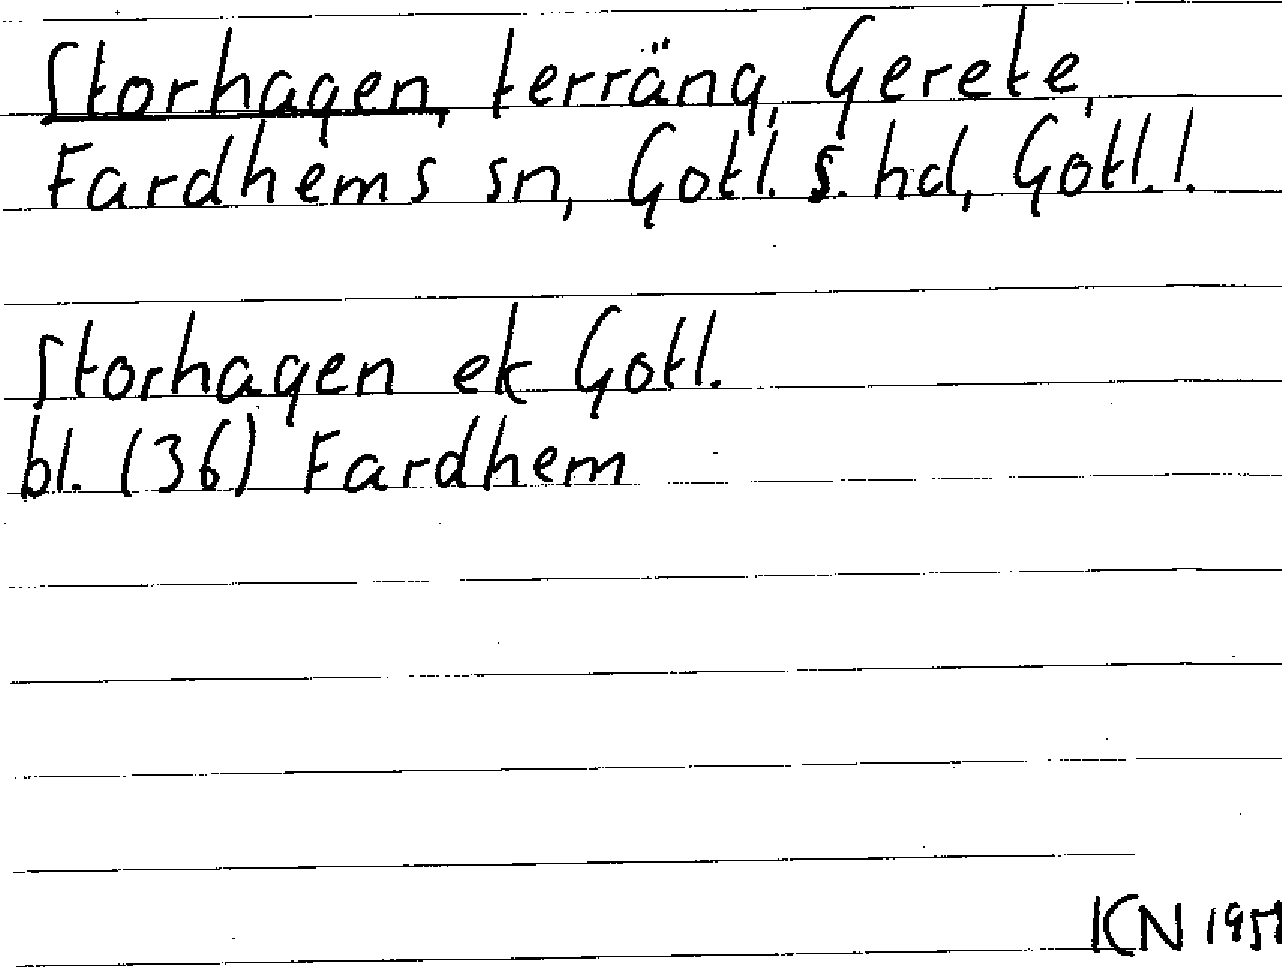 Storhagen, terräng, Gerete,
Fardhems sn, Gotl. s. hd, Gotl. l.
Storhagen ek Gotl.
bl. (36) Fardhem
KCN